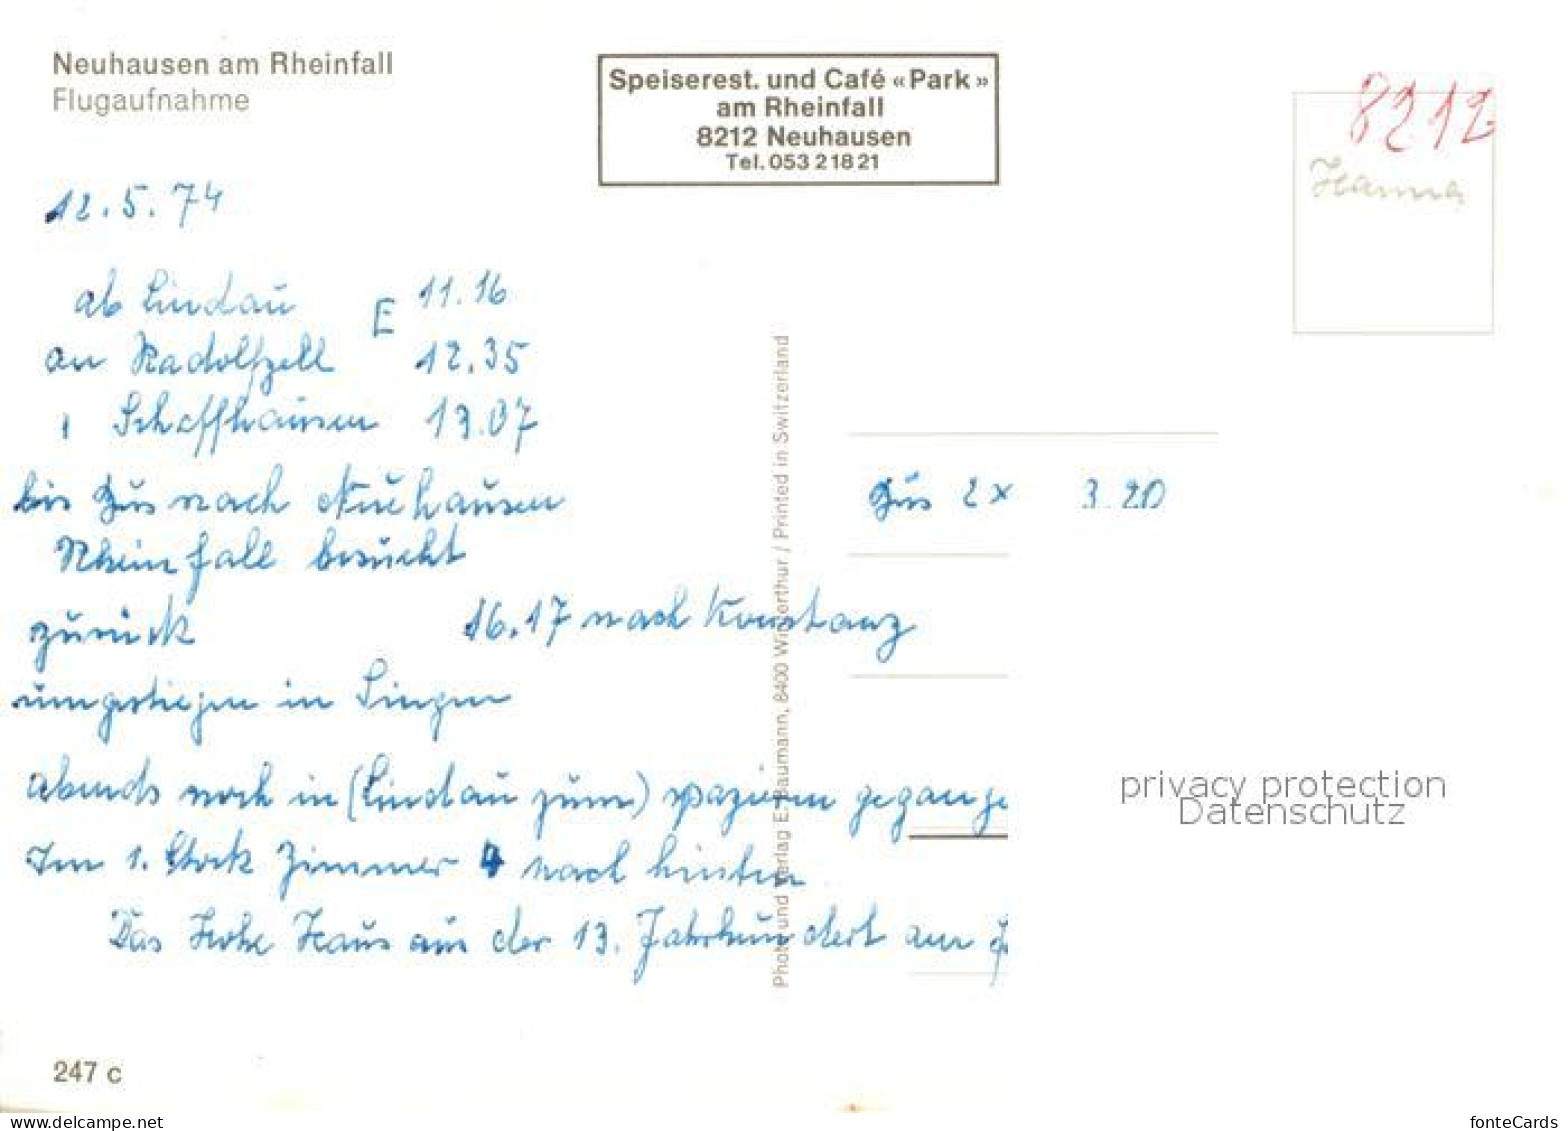 Neuhausen am Rheinfall
Flugaufnahme
Speiserest. und Café «Park»
am Rheinfall
8212 Neuhausen
Tel. 053 2 18 21
8212
Hanna
12.5.74
ab Lindau E 11.16
an Radolfzell 12.35
" Schaffhausen 13.07
bis Bus nach Neuhausen
Rheinfall besucht
zurück 16.17 nach Konstanz
umgestiegen in Singen
abends noch in (Lindau zum) spazieren gegange
Im 1. Stock Zimmer 4 nach hinten
Das Hohe Haus aus der 13. Jahrhundert am
Bus 2 x 3.20
Photo und Verlag E. Baumann, 8400 Winterthur / Printed in Switzerland
privacy protection
Datenschutz
247 c
www.delcampe.net
fonteCards